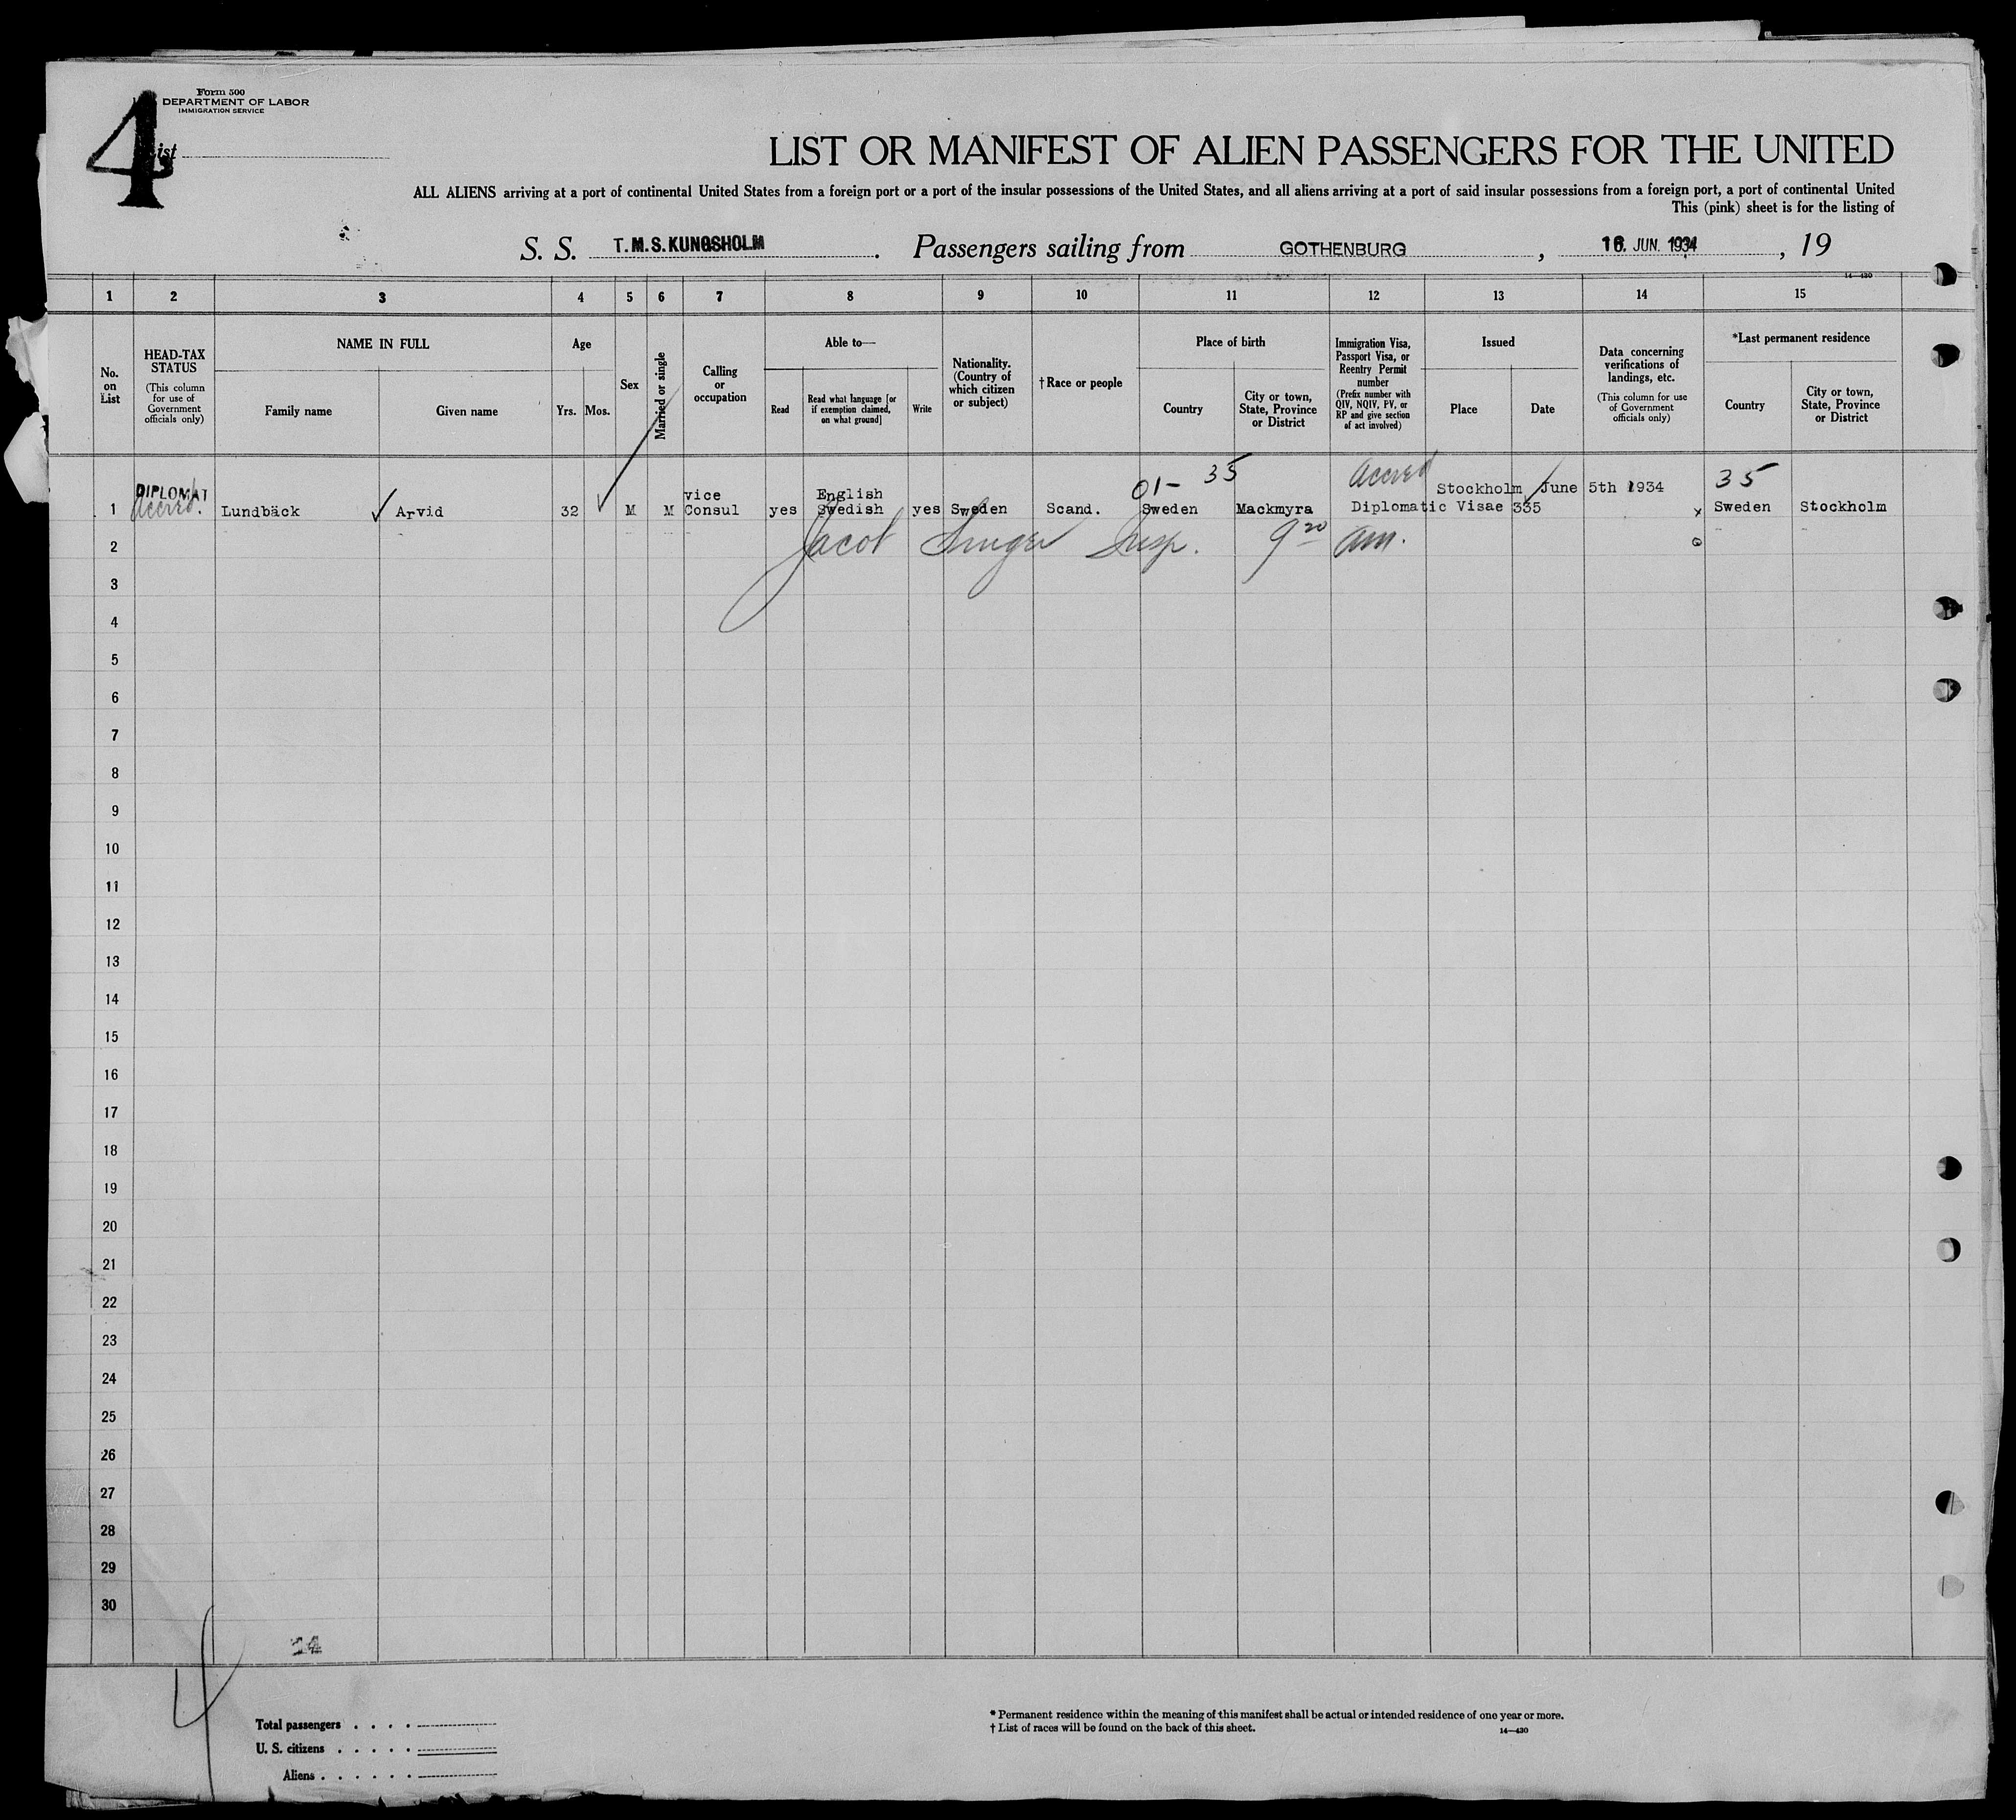 Form 500
DEPARTMENT OF LABOR
IMMIGRATION SERVICE
4
List
LIST OR MANIFEST OF ALIEN PASSENGERS FOR THE UNITED
ALL ALIENS arriving at a port of continental United States from a foreign port or a port of the insular possessions of the United States, and all aliens arriving at a port of said insular possessions from a foreign port, a port of continental United
This (pink) sheet is for the listing of
S. S. T.M.S. KUNGSHOLM. Passengers sailing from GOTHENBURG, 16. JUN. 1934, 19
14—430
1 2 3 4 5 6 7 8 9 10 11 12 13 14 15
No. on List
HEAD-TAX STATUS
(This column for use of Government officials only)
NAME IN FULL
Family name
Given name
Age
Yrs.
Mos.
Sex
Married or single
Calling or occupation
Able to—
Read
Read what language [or if exemption claimed, on what ground]
Write
Nationality. (Country of which citizen or subject)
†Race or people
Place of birth
Country
City or town, State, Province or District
Immigration Visa, Passport Visa, or Reentry Permit number
(Prefix number with QIV, NQIV, PV, or RP and give section of act involved)
Issued
Place
Date
Data concerning verifications of landings, etc.
(This column for use of Government officials only)
*Last permanent residence
Country
City or town, State, Province or District
01- 35 Accred 35
DIPLOMAT vice English Stockholm June 5th 1934
1 Accred. Lundbäck Arvid 32 M M Consul yes Swedish yes Sweden Scand. Sweden Mackmyra Diplomatic Visae 335 x Sweden Stockholm
2 Jacob Insp. 9 20 am.
3
4
5
6
7
8
9
10
11
12
13
14
15
16
17
18
19
20
21
22
23
24
25
26
27
28
29
30
14
4
Total passengers . . . .
U. S. citizens . . . . .
Aliens . . . . . .
* Permanent residence within the meaning of this manifest shall be actual or intended residence of one year or more.
† List of races will be found on the back of this sheet.
14—430